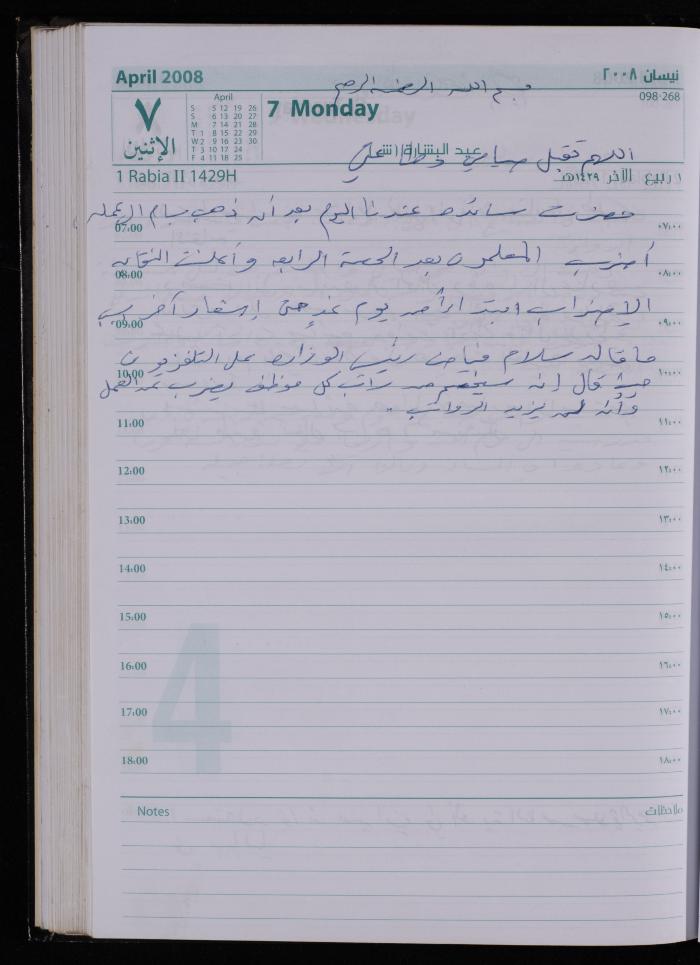 April 2008
نيسان ٢٠٠٨
بسم الله الرحمن الرحيم
098-268
April
S 5 12 19 26
S 6 13 20 27
M 7 14 21 28
T 1 8 15 22 29
W 2 9 16 23 30
T 3 10 17 24
F 4 11 18 25
٧
الإثنين
7 Monday
عيد البشارة
اللهم تقبل صيامي
1 Rabia II 1429H
١ ربيع الآخر ١٤٢٩هـ
حضرت سائده عندنا اليوم بعد أن ذهب بسام الى عمله
07:00 ٠٧:٠٠
أضرب المعلمون بعد الحصة الرابعه وأعلنت النقابه
08:00 ٠٨:٠٠
الإضراب ابتداءاً من يوم غدٍ حتى إشعار آخر بسبب
09:00 ٠٩:٠٠
ما قاله سلام فياض رئيس الوزاره على التلفزيون
10:00 ١٠:٠٠
حيث قال إنه سيخصم من راتب كل موظف يضرب عن العمل
وأنه لن يزيد الرواتب .
11:00 ١١:٠٠
12:00 ١٢:٠٠
13:00 ١٣:٠٠
14:00 ١٤:٠٠
15:00 ١٥:٠٠
16:00 ١٦:٠٠
17:00 ١٧:٠٠
18:00 ١٨:٠٠
4
Notes ملاحظات